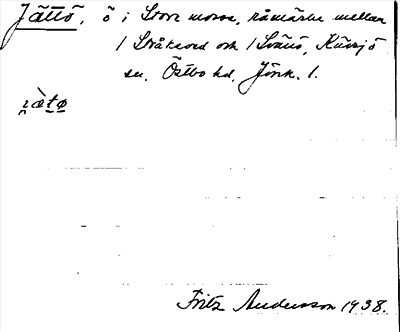 Jättö, ö i Stora mosse, råmärke mellan
1 Stråkeved och 1 Svänö, Kävsjö
sn. Östbo hd, Jönk. l.
Fritz Andersson 1938.